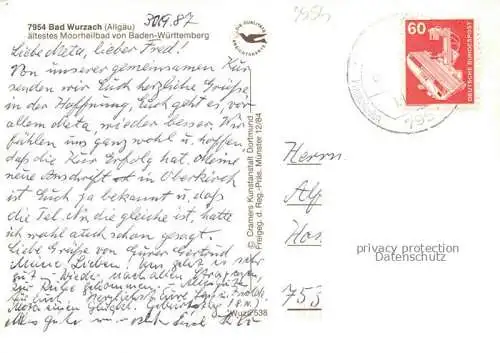 7954 Bad Wurzach (Allgäu)
ältestes Moorheilbad von Baden-Württemberg
30.9.87
Liebe Meta, lieber Fred!
Von unserer gemeinsamen Kur
senden wir Euch herzliche Grüße
in der Hoffnung, Euch geht es, vor
allem Meta, wieder besser. Wir
fühlen uns ganz wohl u. hoffen,
daß die Kur Erfolg hat. Meine
neue Anschrift in Oberkirch
ist Euch ja bekannt u. daß
die Tel. Nr. die gleiche ist, hatte
ich wohl auch schon gesagt.
Liebe Grüße von Eurer Gertrud
Meine Lieben! Uns geht es sehr
gut - nach allen
zur Ruhe gekommen. - Alles Gute
Herzlichst Eure
Alles Gute
© Cramers Kunstanstalt Dortmund
Freigeg. d. Reg.-Präs. Münster 12/84
Wuza 538
60
DEUTSCHE BUNDESPOST
Herrn
privacy protection
Datenschutz